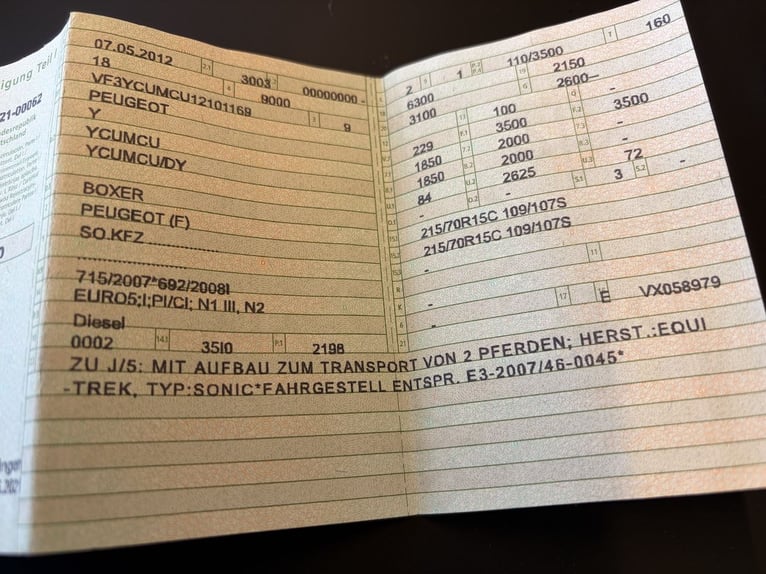 igung Teil I
21-00062
desrepublik
tschland
07.05.2012 2.1 3003 2.2 00000000 -
18 4 9000
VF3YCUMCU12101169 3 9
PEUGEOT
Y
YCUMCU
YCUMCU/DY
BOXER
PEUGEOT (F)
SO.KFZ
715/2007*692/2008I
EURO5;I;PI/CI; N1 III, N2
Diesel
0002 14.1 35I0 P.1 2198
2 1 110/3500 T 160
6300 2150
3100 G 2600-- -
229 100 3500
1850 3500 -
1850 2000 -
84 2000 72
- 2625 S.1 3 S.2 -
-
215/70R15C 109/107S
215/70R15C 109/107S
- 11
-
- 17 E VX058979
ZU J/5: MIT AUFBAU ZUM TRANSPORT VON 2 PFERDEN; HERST.:EQUI
-TREK, TYP:SONIC*FAHRGESTELL ENTSPR. E3-2007/46-0045*